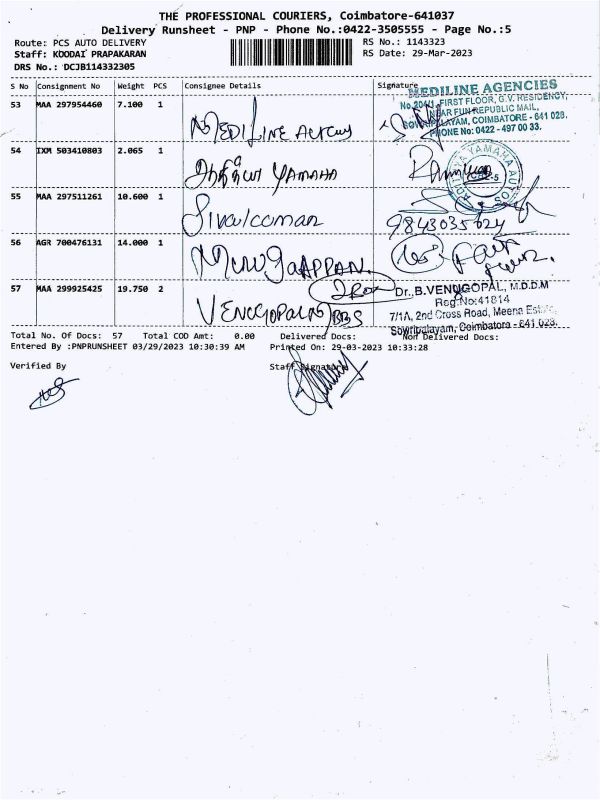 THE PROFESSIONAL COURIERS, Coimbatore-641037
Delivery Runsheet - PNP - Phone No.:0422-3505555 - Page No.:5
Route: PCS AUTO DELIVERY RS No.: 1143323
Staff: KOODAI PRAPAKARAN RS Date: 29-Mar-2023
DRS No.: DCJB114332305
S No Consignment No Weight PCS Consignee Details Signature
MEDILINE AGENCIES
53 MAA 297954460 7.100 1
No.204/1, FIRST FLOOR, G.V. RESIDENCY,
NEAR FUN REPUBLIC MAIL,
SOWRIPALAYAM, COIMBATORE - 641 028.
PHONE No: 0422 - 497 00 33.
MEDILINE
54 IXM 503410803 2.065 1
YAMAHA
ADITHYA YAMAHA AUTOS
CBE-5
55 MAA 297511261 10.600 1
Sivakumar
9843035624
56 AGR 700476131 14.000 1
MURUGAPPAN
57 MAA 299925425 19.750 2
Dr. B.VENUGOPAL, M.D.D.M
Reg.No:41814
7/1A, 2nd Cross Road, Meena Estate,
Sowripalayam, Coimbatore - 641 028.
VENUGOPAL
Total No. Of Docs: 57 Total COD Amt: 0.00 Delivered Docs: Non Delivered Docs:
Entered By :PNPRUNSHEET 03/29/2023 10:30:39 AM Printed On: 29-03-2023 10:33:28
Verified By Staff Signature